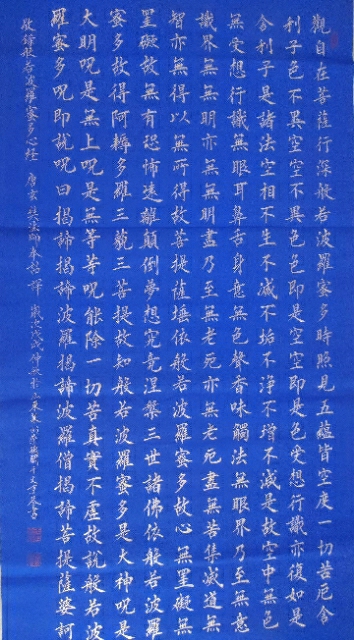 觀自在菩薩行深般若波羅蜜多時照見五蘊皆空度一切苦厄舍
利子色不異空空不異色色即是空空即是色受想行識亦復如是
舍利子是諸法空相不生不滅不垢不淨不增不減是故空中無色
無受想行識無眼耳鼻舌身意無色聲香味觸法無眼界乃至無意
識界無無明亦無無明盡乃至無老死亦無老死盡無苦集滅道無
智亦無得以無所得故菩提薩埵依般若波羅蜜多故心無罣礙無
罣礙故無有恐怖遠離顛倒夢想究竟涅槃三世諸佛依般若波羅
蜜多故得阿耨多羅三藐三菩提故知般若波羅蜜多是大神呪是
大明呪是無上呪是無等等呪能除一切苦真實不虛故說般若波
羅蜜多呪即說呪曰揭諦揭諦波羅揭諦波羅僧揭諦菩提薩婆訶
敬錄般若波羅蜜多心經 唐玄奘法師奉詔譯 歲次戊戌仲